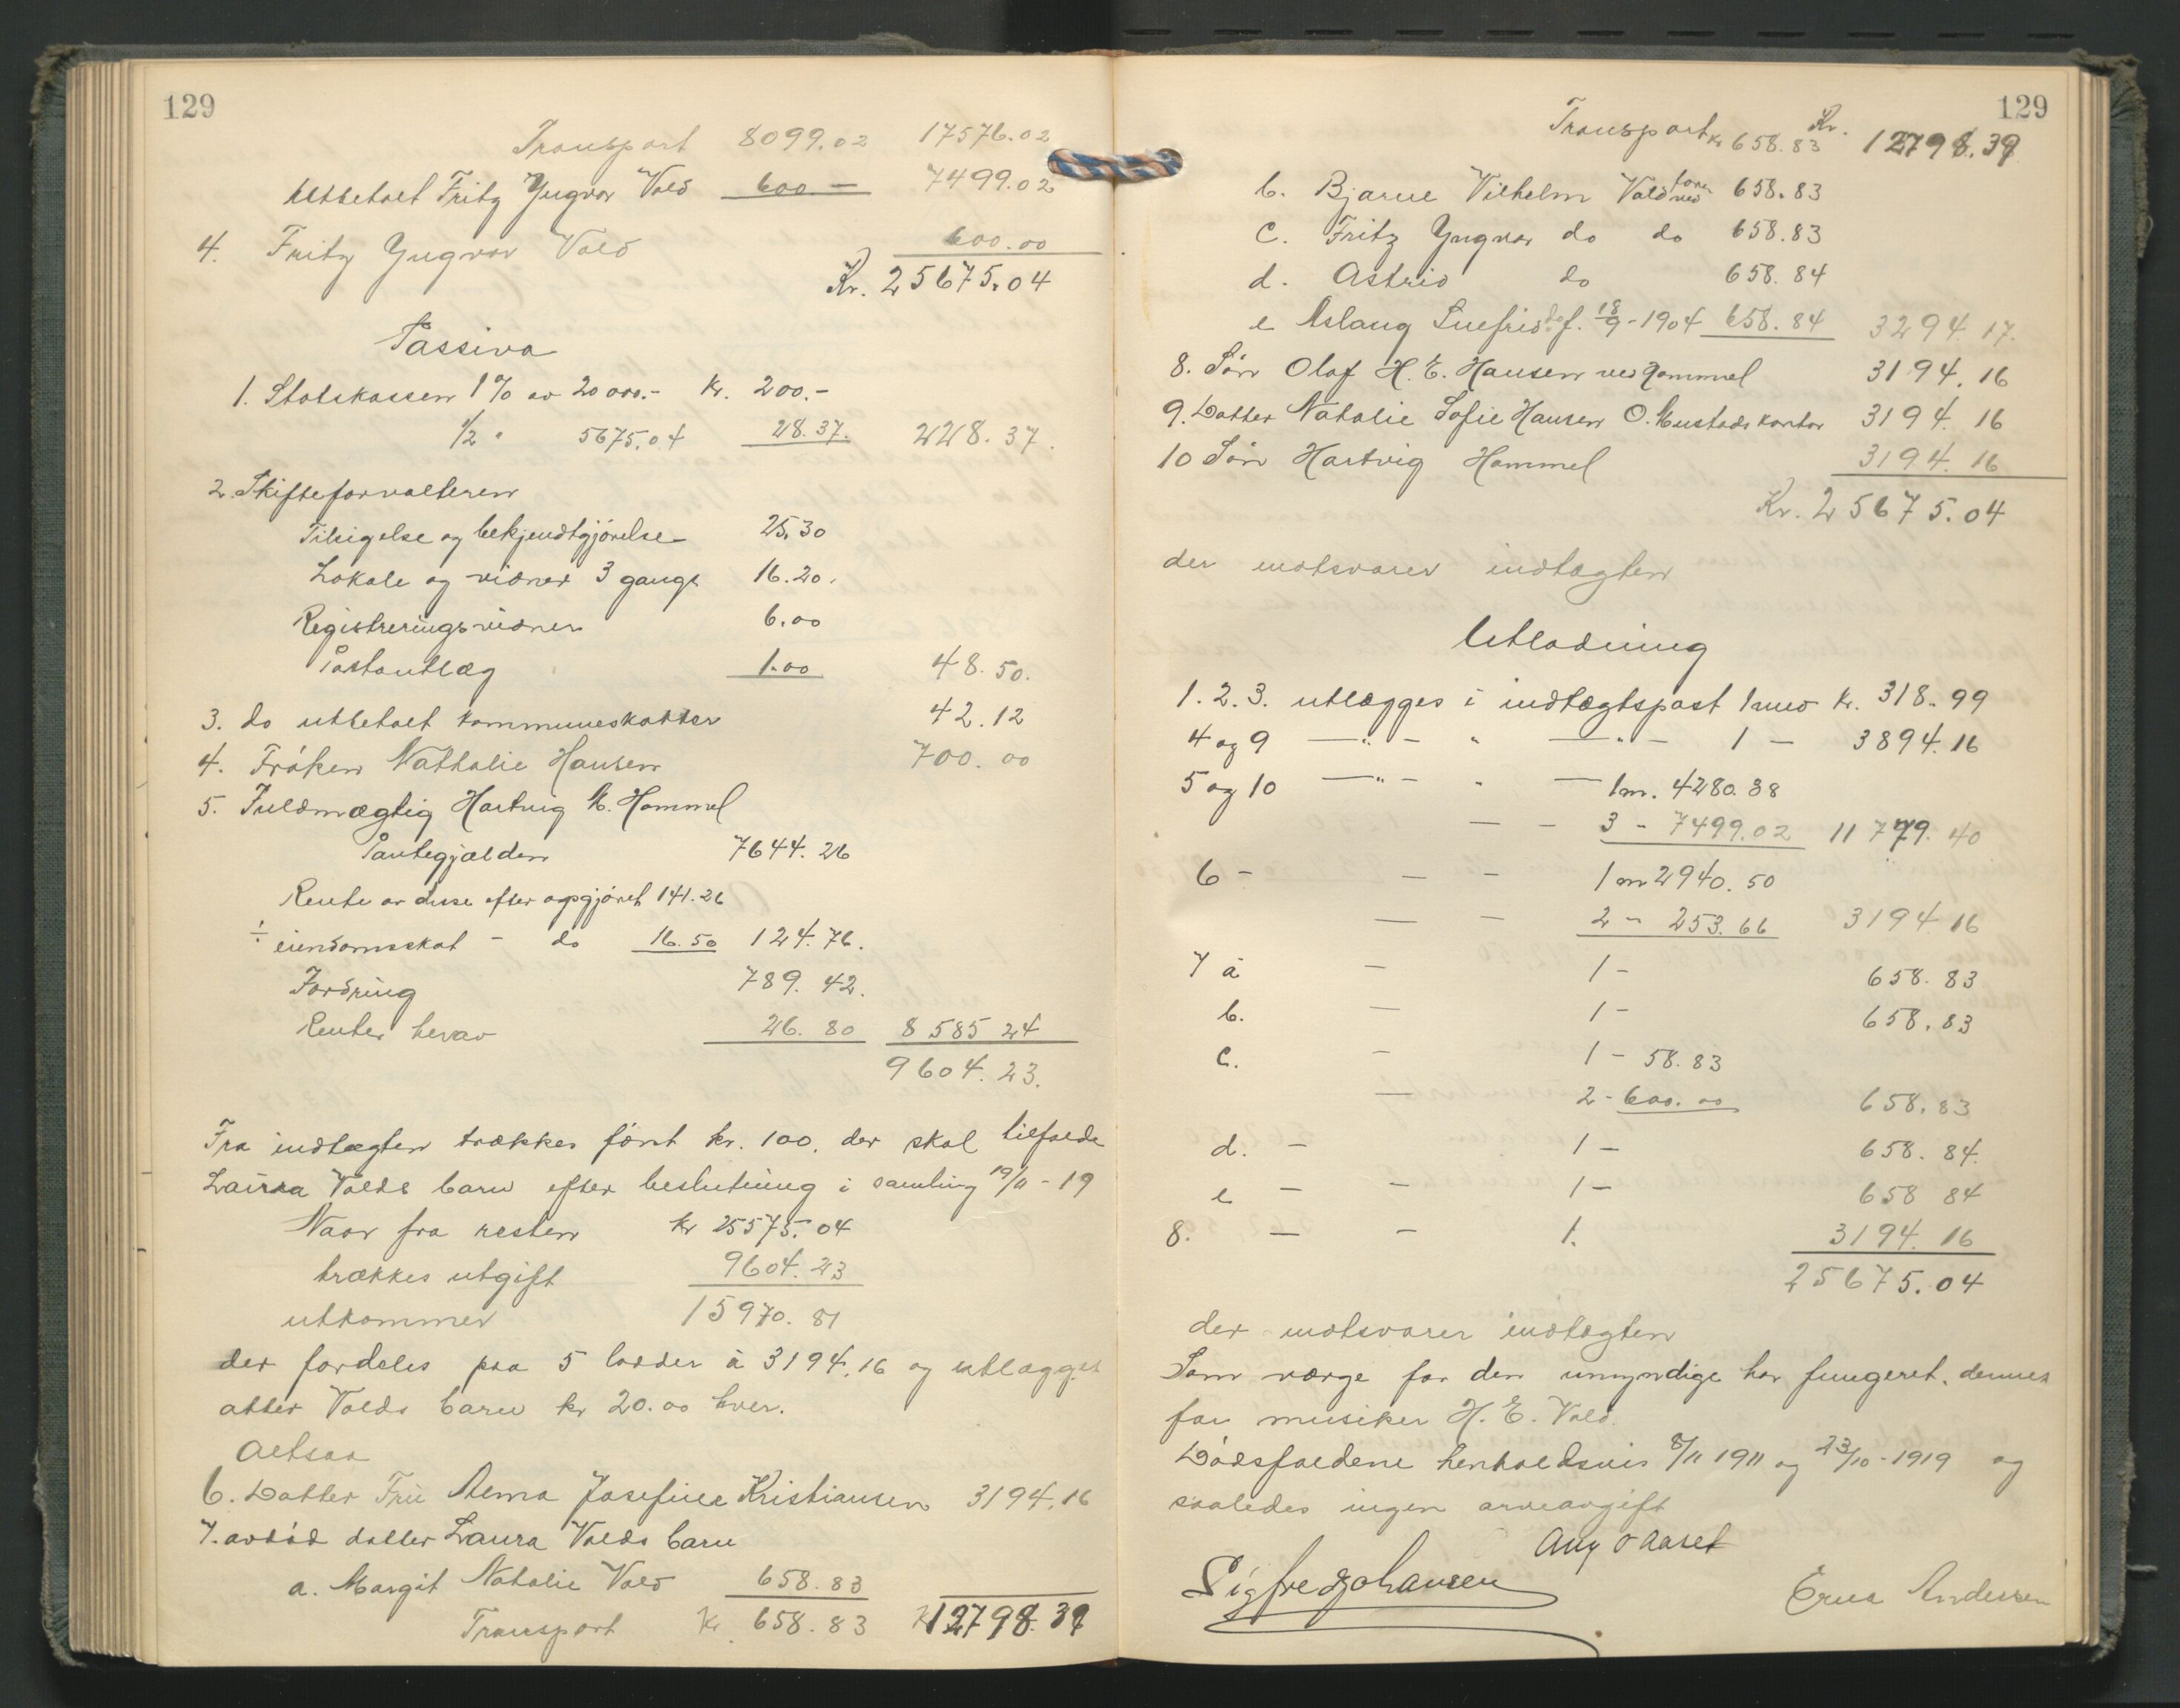 129
Transport 8099.02 17576.02
Utbetalt Fritz Yngvar Vold 600.— 7499.02
4. Fritz Yngvar Vold 600.00
Kr. 25675.04
Passiva
1. Statskassen 1% av 20000.- Kr. 200.-
1/2 " 5675.04 28.37. 228.37.
2. Skifteforvalteren
Tilsigelse og bekjendtgjørelse 25.30
Lokale og vidner 3 gange 16.20.
Registreringsvidner 6.00
Postoutlæg 1.00 48.50.
3. do utbetalt kommuneskatter 42.12
4. Frøken Nathalie Hansen 700.00
5. Fuldmægtig Hartvig M. Hammel
Pantegjælden 7644.26
Rente av disse efter opgjøret 141.26
÷ eiendomsskat - do 16.50 124.76.
Fordring 789.42.
Renter herav 26.80 8585 24
9604.23.
Fra indtægten trækkes først kr. 100. der skal tilfalde
Laura Volds barn efter beslutning i samling 19/11-19
Naar fra resten kr 25575.04
trækkes utgift 9604.23
utkommer 15970.81
der fordeles paa 5 lodder à 3194.16 og utlægges
atter Volds barn kr 20.00 hver.
Altsaa
6. Datter Fru Alma Josefine Kristiansen 3194.16
7. avdød datter Laura Volds barn
a. Margit Natalie Vold 658.83
Transport Kr. 658.83 Kr 12798.39
129
Transport Kr 658.83 Kr. 12798.39
b. Bjarne Vilhelm Vold ved 658.83
c. Fritz Yngvar do do 658.83
d. Astrid do 658.84
e Aslaug Snefrid do f. 18/9-1904 658.84 3294.17.
8. Søn Olaf H. E. Hansen ved Hammel 3194.16
9. Datter Natalie Sofie Hansen O. Mustads kontor 3194.16
10 Søn Hartvig Hammel 3194.16
Kr. 25675.04
der motsvarer indtægten
Utlodning
1. 2. 3. utlægges i indtægtspost 1 med Kr. 318.99
4 og 9 —"— " —"— 1 — 3894.16
5 og 10 —"— " — 1 m. 4280.38
— - 3 - 7499.02 11779.40
6 - — - 1 m 2940.50
— - 2 - 253.66 3194 16
7 a — 1 - 658.83
b. — 1 - 658.83
c. - 1 - 58.83
— 2 - 600.00 658.83
d. - 1 — 658.84.
e - - 1 - 658 84
8. — - 1. 3194.16
25675.04
der motsvarer indtægten
Som værge for den umyndige har fungeret dennes
far musiker H. E. Vold.
Dødsfaldene henholdsvis 8/11 1911 og 23/10-1919 og
saaledes ingen arveavgift
Aug Aaset
Sigfred Johansen Erna Andersen